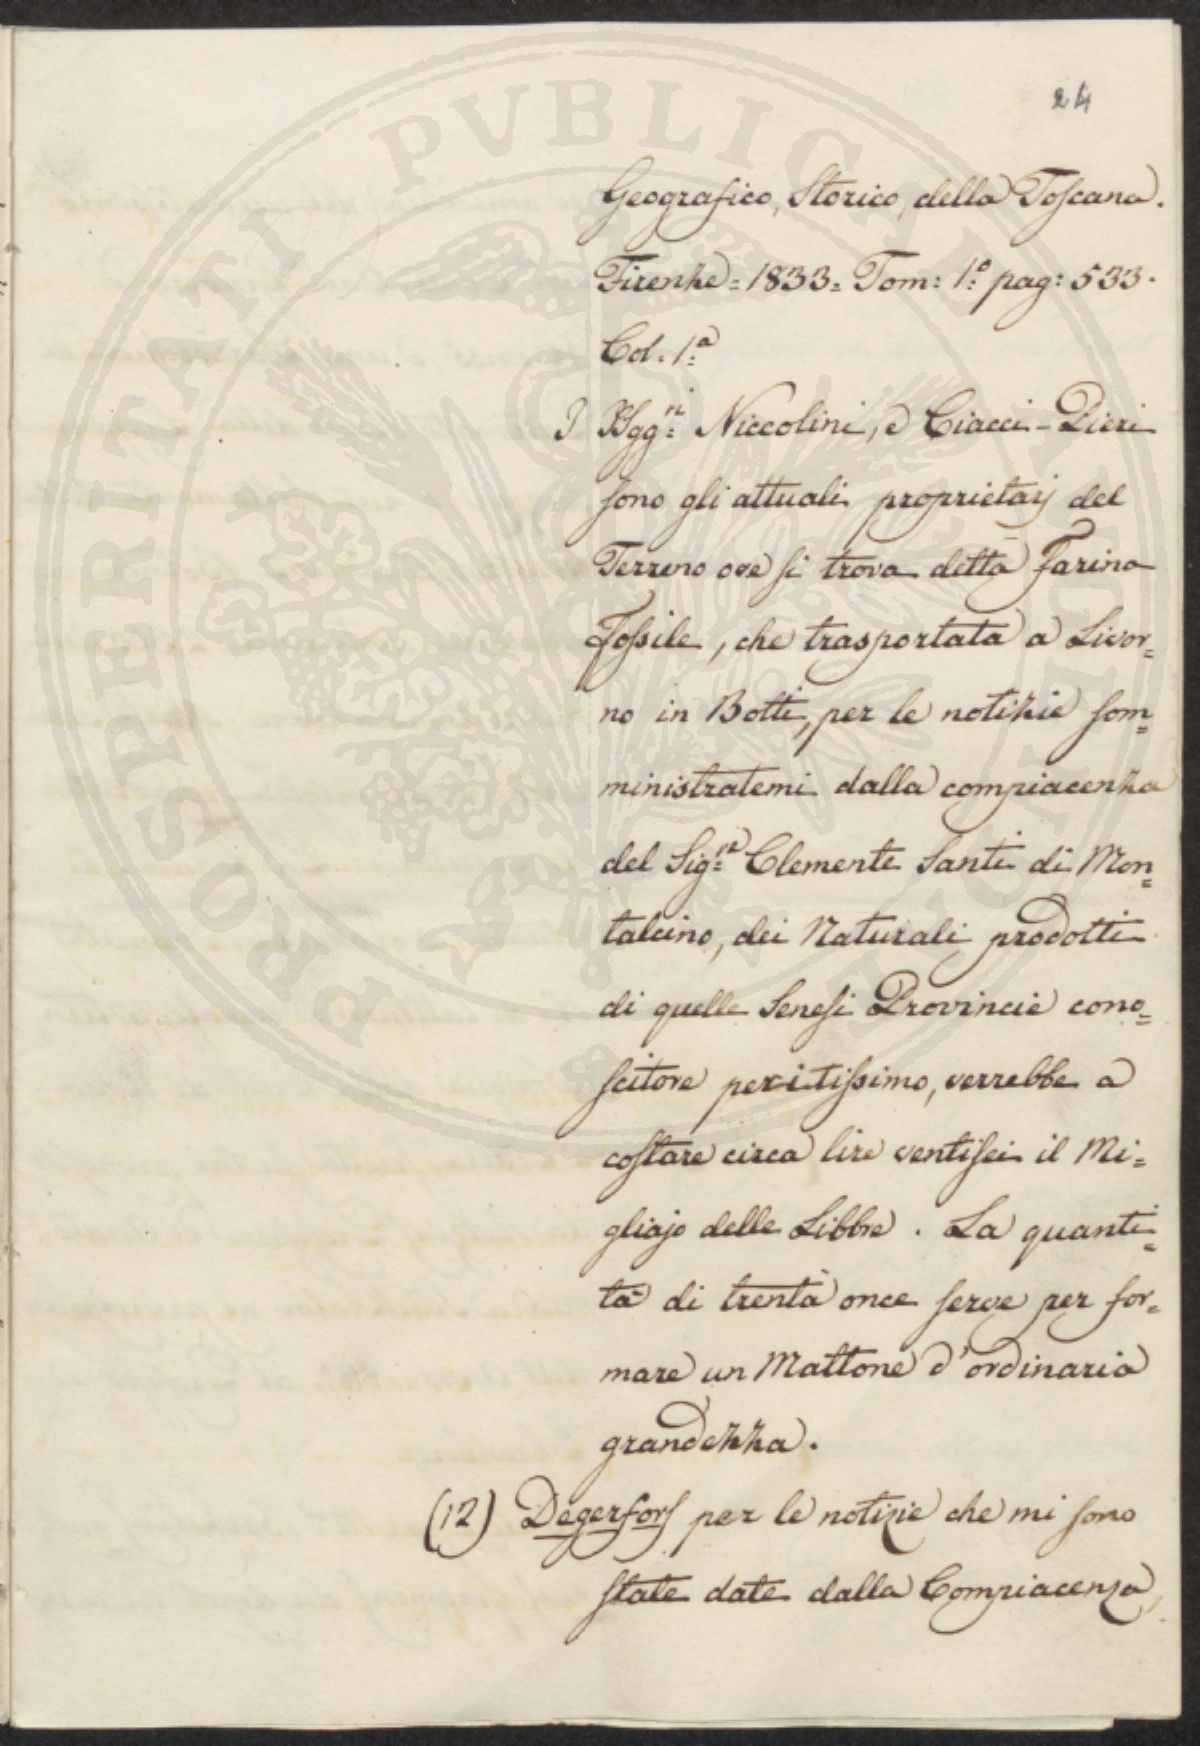 24
Geografico, Storico, della Toscana.
Firenze = 1833 = Tom: 1.º pag: 533.
Col. 1.ª
I SSgg.ri Niccolini, e Ciacci-Pieri
sono gli attuali proprietarj del
Terreno ove si trova detta Farina
Fossile, che trasportata a Livor=
no in Botti, per le notizie som=
ministratemi dalla compiacenza
del Sig.r Clemente Santi di Mon=
talcino, dei Naturali prodotti
di quelle Senesi Provincie cono=
scitore peritissimo, verrebbe a
costare circa lire ventisei il Mi=
gliajo delle Libbre. La quanti=
tà di trenta once serve per for=
mare un Mattone d'ordinaria
grandezza.
(12) Degerfors per le notizie che mi sono
state date dalla Compiacenza,
PROSPERITATI PVBLICAE AVGENDAE